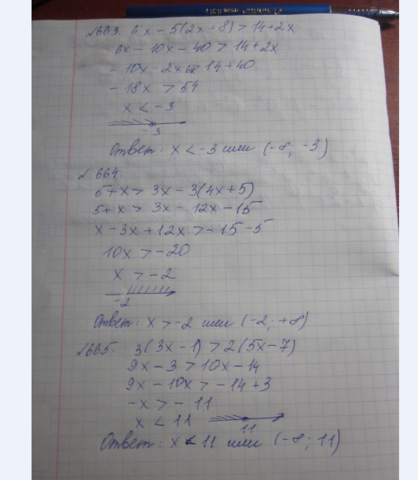 №663. 6x - 5(2x+8) > 14+2x
6x - 10x - 40 > 14+2x
- 10x - 2x 14+40
- 18x > 54
x < -3
-3
Ответ: x < -3 или (-∞; -3)
№664.
5+x > 3x - 3(4x+5)
5+x > 3x - 12x - 15
x - 3x + 12x > -15 - 5
10x > -20
x > -2
-2
Ответ: x > -2 или (-2; +∞)
№665. 3(3x-1) > 2(5x-7)
9x - 3 > 10x - 14
9x - 10x > -14+3
-x > -11
x < 11
11
Ответ: x < 11 или (-∞; 11)